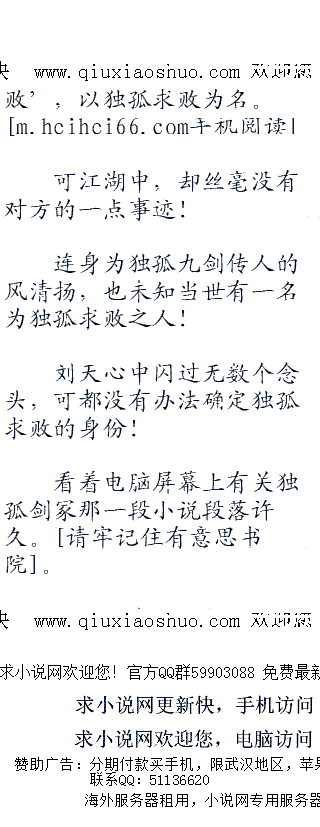 快 www.qiuxiaoshuo.com 欢迎您
败’，以独孤求败为名。
[m.hcihci66.com手机阅读]
可江湖中，却丝毫没有
对方的一点事迹！
连身为独孤九剑传人的
风清扬，也未知当世有一名
为独孤求败之人！
刘天心中闪过无数个念
头，可都没有办法确定独孤
求败的身份！
看着电脑屏幕上有关独
孤剑冢那一段小说段落许
久。[请牢记住有意思书
院]。
快 www.qiuxiaoshuo.com 欢迎您
求小说网欢迎您！官方QQ群59903088 免费最新
求小说网更新快，手机访问
求小说网欢迎您，电脑访问
赞助广告：分期付款买手机，限武汉地区，苹果
联系QQ：51136620
海外服务器租用，小说网专用服务器